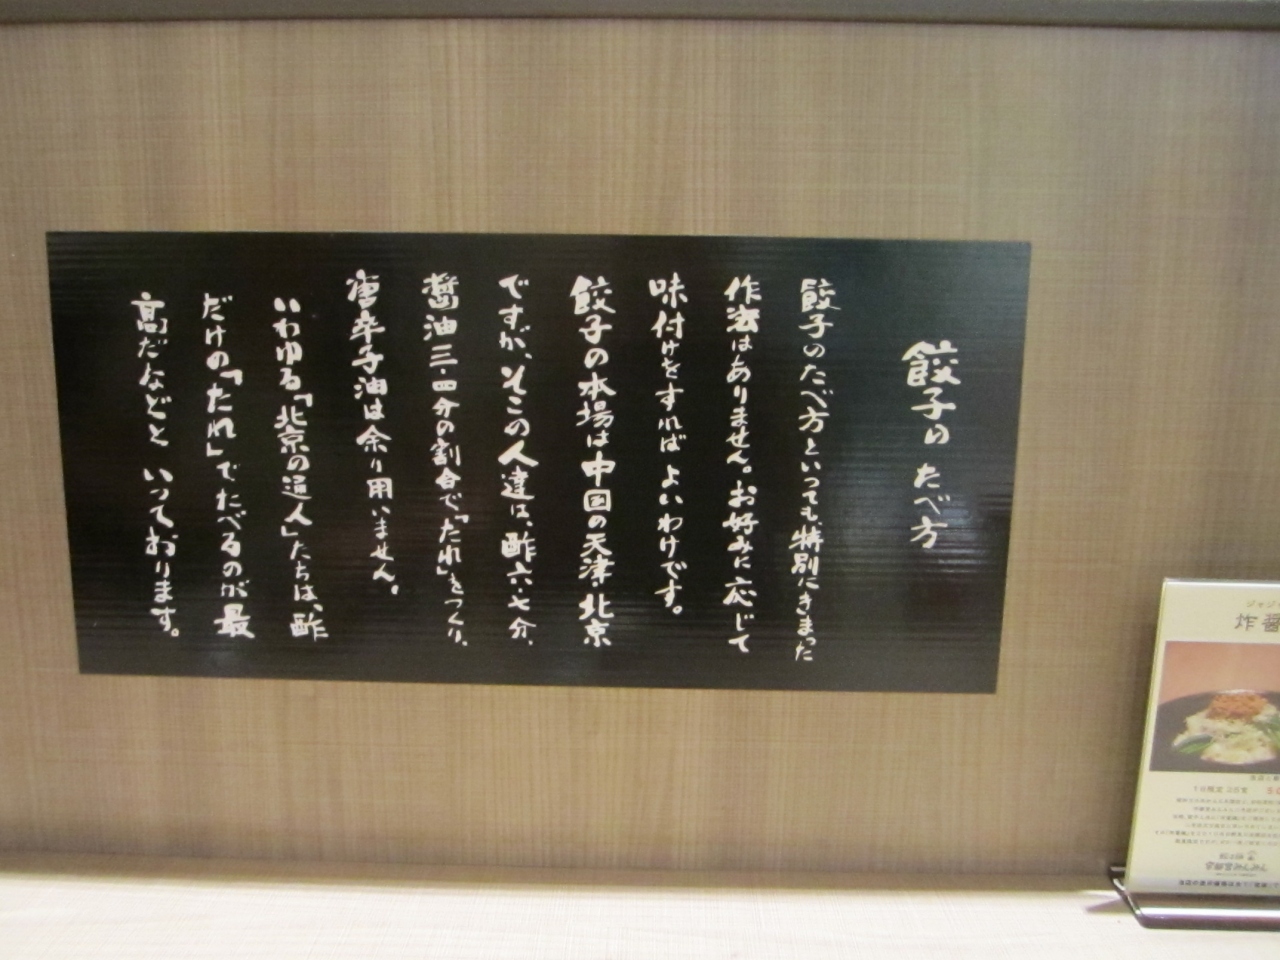 餃子の たべ方
餃子のたべ方といっても、特別にきまった
作法はありません。お好みに応じて
味付けをすれば よいわけです。
餃子の本場は中国の天津・北京
ですが、そこの人達は、酢六・七分、
醤油三・四分の割合で「たれ」をつくり、
唐辛子油は余り用いません。
いわゆる「北京の通人」たちは、酢
だけの「たれ」でたべるのが最
高だなどと いっております。
炸醤